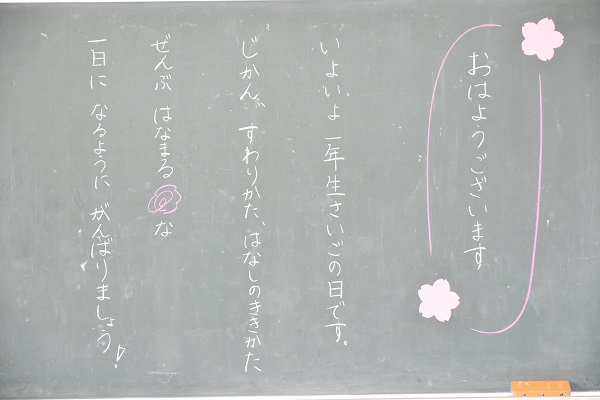 おはようございます
いよいよ一年生さいごの日です。
じかん、すわりかた、はなしのききかた
ぜんぶ はなまる な
一日に なるように がんばりましょう!